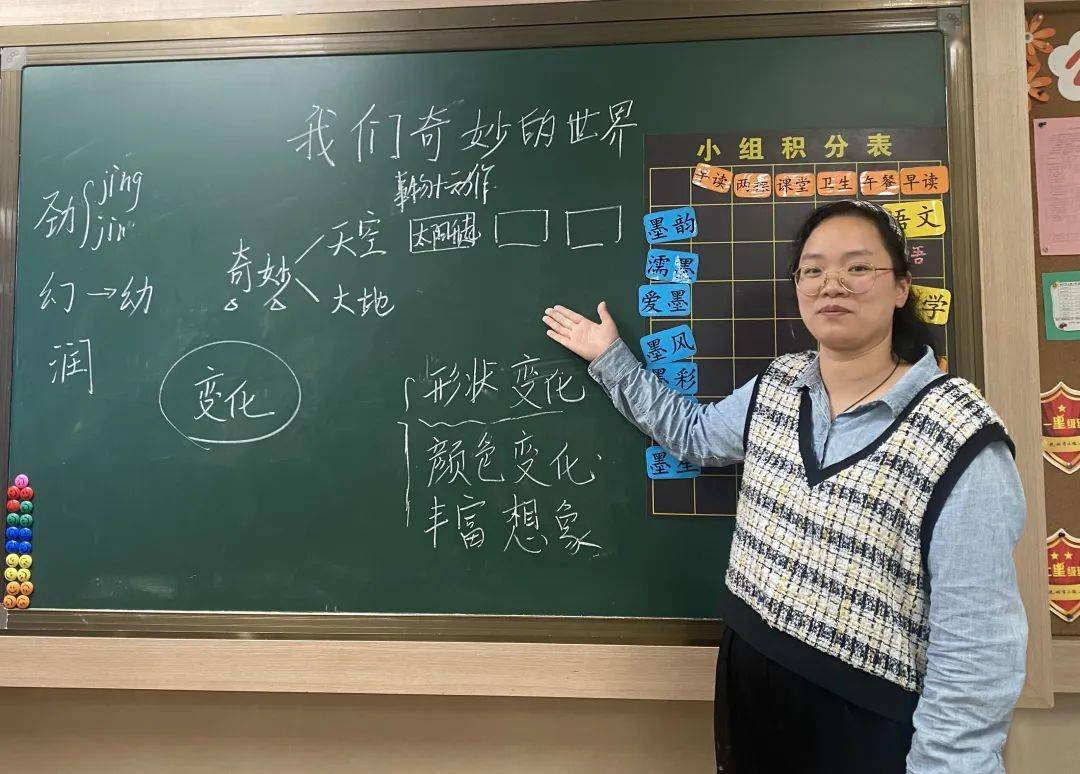 我们奇妙的世界
劲 jìng
jìn
幻→幼
润
事物+动作
奇妙
天空
大地
变化
形状变化
颜色变化
丰富想象
小组积分表
午读 两操 课堂 卫生 午餐 早读
墨韵
濡墨
爱墨
墨风
墨彩
语文
学